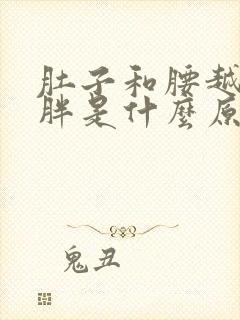 肚子和腰越
胖是什麼原
鬼丑